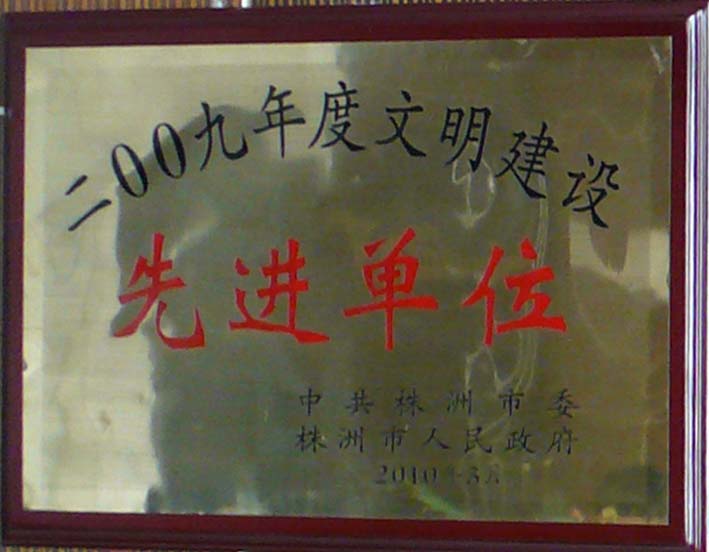 二00九年度文明建设
先进单位
中共株洲市委
株洲市人民政府
2010年3月